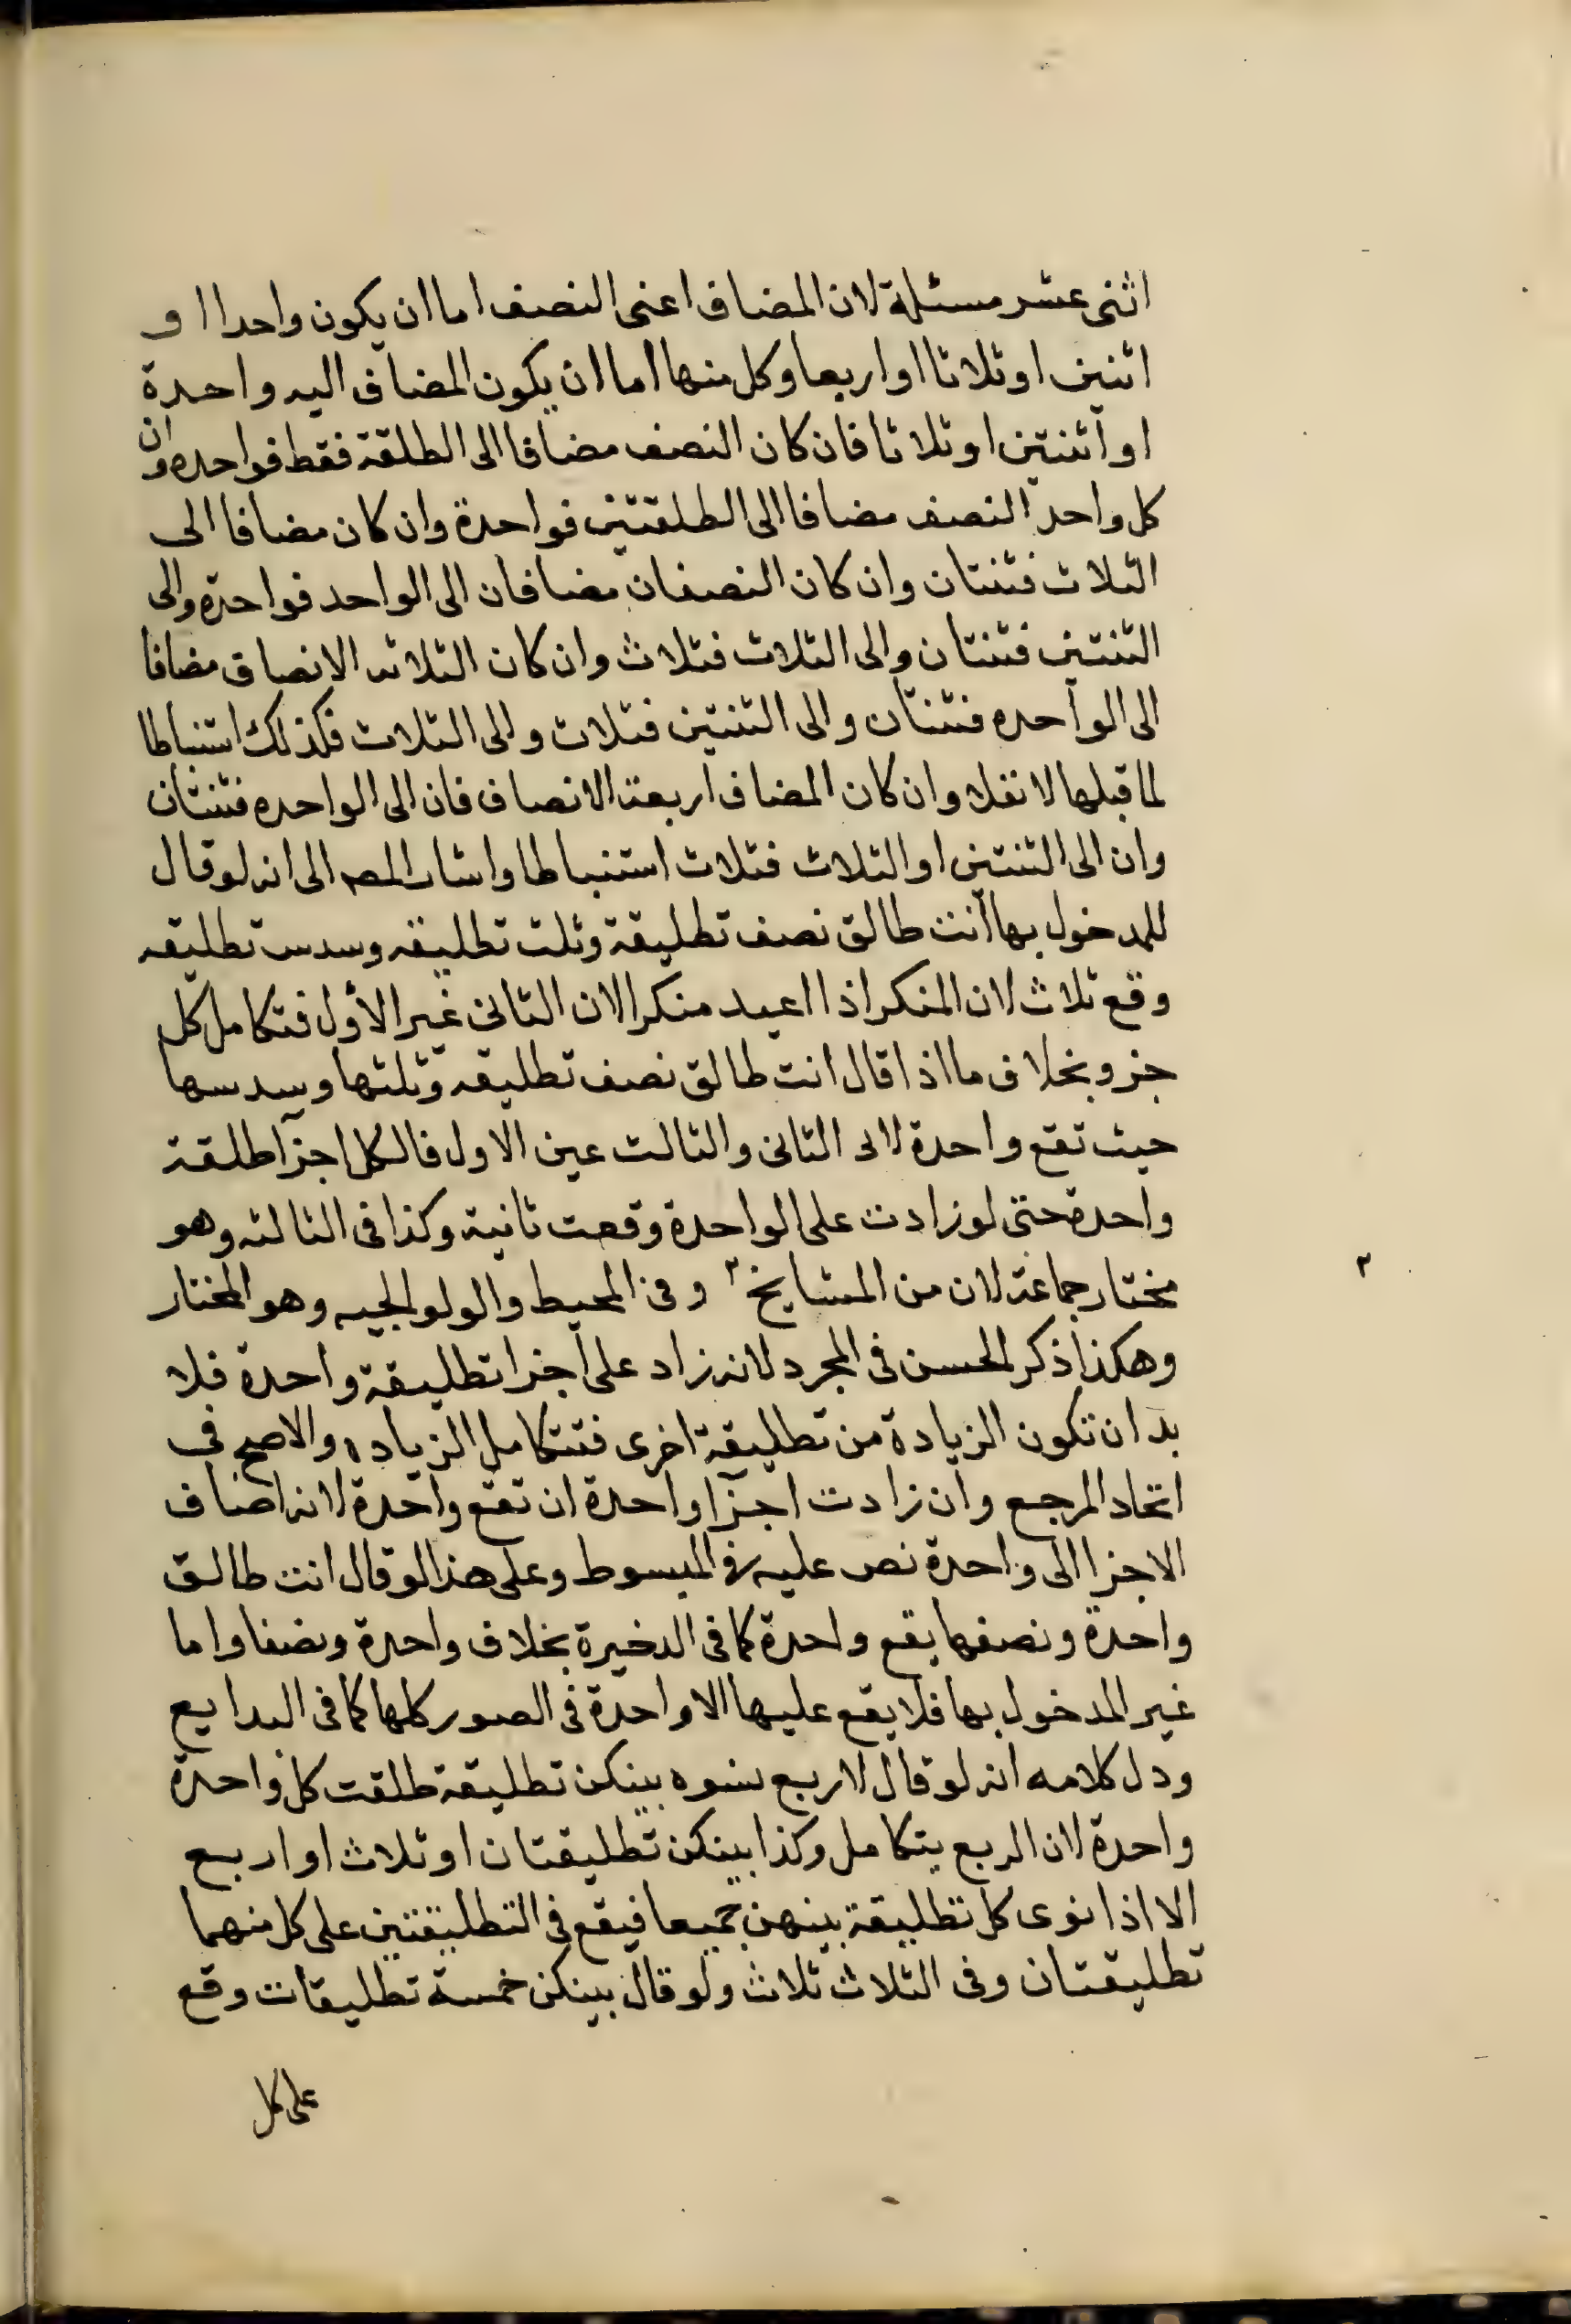 اثنى عشر مسئلة لان المضاف اعنى النصف اما ان يكون واحدا او
اثنين او ثلاثا او اربعا وكل منها اما ان يكون المضاف اليه واحدة
او اثنتين او ثلاثا فان كان النصف مضافا الى الطلقة فقط فواحده وان
كل واحد النصف مضافا الى الطلقتين فواحدة وان كان مضافا الى
الثلاث فثنتان وان كان النصفان مضافان الى الواحد فواحدة والى
الثنتين فثنتان والى الثلاث فثلاث وان كان الثلاثه الانصاف مضافا
الى الواحده فثنتان والى الثنتين فثلاث والى الثلاث فكذلك استنباطا
لما قبلها لا نقلا وان كان المضاف اربعة الانصاف فان الى الواحده فثنتان
وان الى الثنتين او الثلاث فثلاث استنباطا واشار المصـ الى انه لو قال
للمدخول بها انت طالق نصف تطليقة وثلث تطليقه وسدس تطليقه
وقع ثلاث لان المنكر اذا اعيد منكرا لان الثانى غير الأول فتكامل كل
جزو بخلاف ما اذا قال انت طالق نصف تطليقه وثلثها وسدسها
حيث تقع واحدة لان الثانى والثالث عين الاول فالكل اجزآ طلقة
واحدة حتى لو زادت على الواحدة وقعت ثانية وكذا فى الثالثه وهو
مختار جماعة لان من المشايخ ٣ وفى المحيط والولوالجيه وهو المختار
وهكذا ذكر الحسن فى المجرد لانه زاد على اجزا تطليقة واحدة فلا
بد ان تكون الزيادة من تطليقة اخرى فتتكامل الزياده والاصح فى
اتحاد المرجع وان زادت اجزآ واحدة ان تقع واحدة لانه اضاف
الاجزا الى واحدة نص عليه فى المبسوط وعلى هذا لو قال انت طالق
واحدة ونصفها يقع واحدة كما فى الدخيرة بخلاف واحدة ونصفا واما
غير المدخول بها فلا يقع عليها الا واحدة فى الصور كلها كما فى البدايع
ودل كلامه انه لو قال لاربع نسوه بينكن تطليقة طلقت كل واحدة
واحدة لان الربع يتكامل وكذا بينكن تطليقتان او ثلاث او اربع
الا اذا نوى كل تطليقة بينهن جميعا فيقع فى التطليقتين على كل منهما
تطليقتان وفى الثلاث ثلاث ولو قال بينكن خمسة تطليقات وقع
على كل